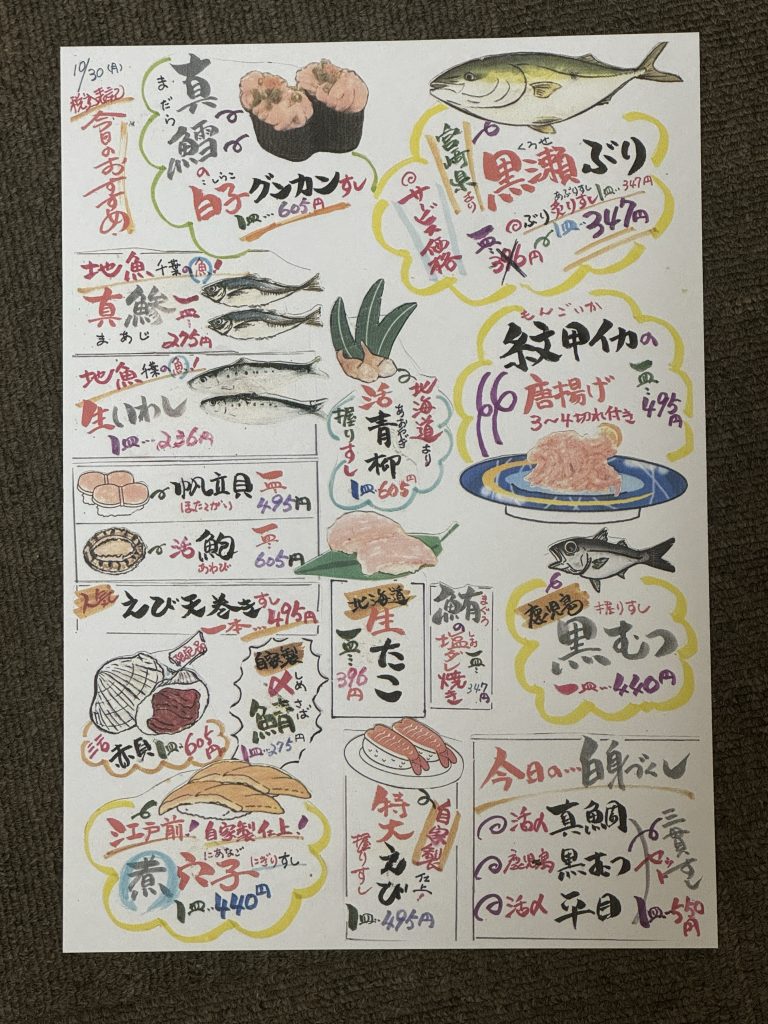 10/30(月)
税込表記
今日のおすすめ
まだら
真鱈の
しらこ
白子グンカンすし
1皿…605円
宮崎県より
くろせ
黒瀬ぶり
サービス価格
あぶりすし
◎ぶり炙りすし1皿…347円
一皿…396円
1皿…347円
地魚千葉の魚!
真鯵
まあじ
一皿…275円
地魚千葉の魚!
生いわし
1皿…236円
北海道より
活青柳
あおやぎ
握りすし
1皿…605円
もんごいか
紋甲イカの
唐揚げ
3〜4切れ付き
一皿…495円
帆立貝
ほたてがい
一皿…495円
活鮑
あわび
一皿…605円
人気
えび天巻きすし
一本…495円
北海道
生たこ
一皿…396円
まぐろ
鮪の塩ダレ焼き
しお
一皿…347円
鹿児島
握りすし
黒むつ
一皿…440円
赤貝1皿…605円
自家製
〆鯖
しめさば
1皿…275円
江戸前!自家製仕上!
にあなご
煮穴子にぎりすし
1皿…440円
自家製仕上!
特大えび
握りすし
1皿…495円
今日の…白身づくし
活〆真鯛
鹿児島黒むつ
活〆平目
三貫すし
セット
1皿…550円